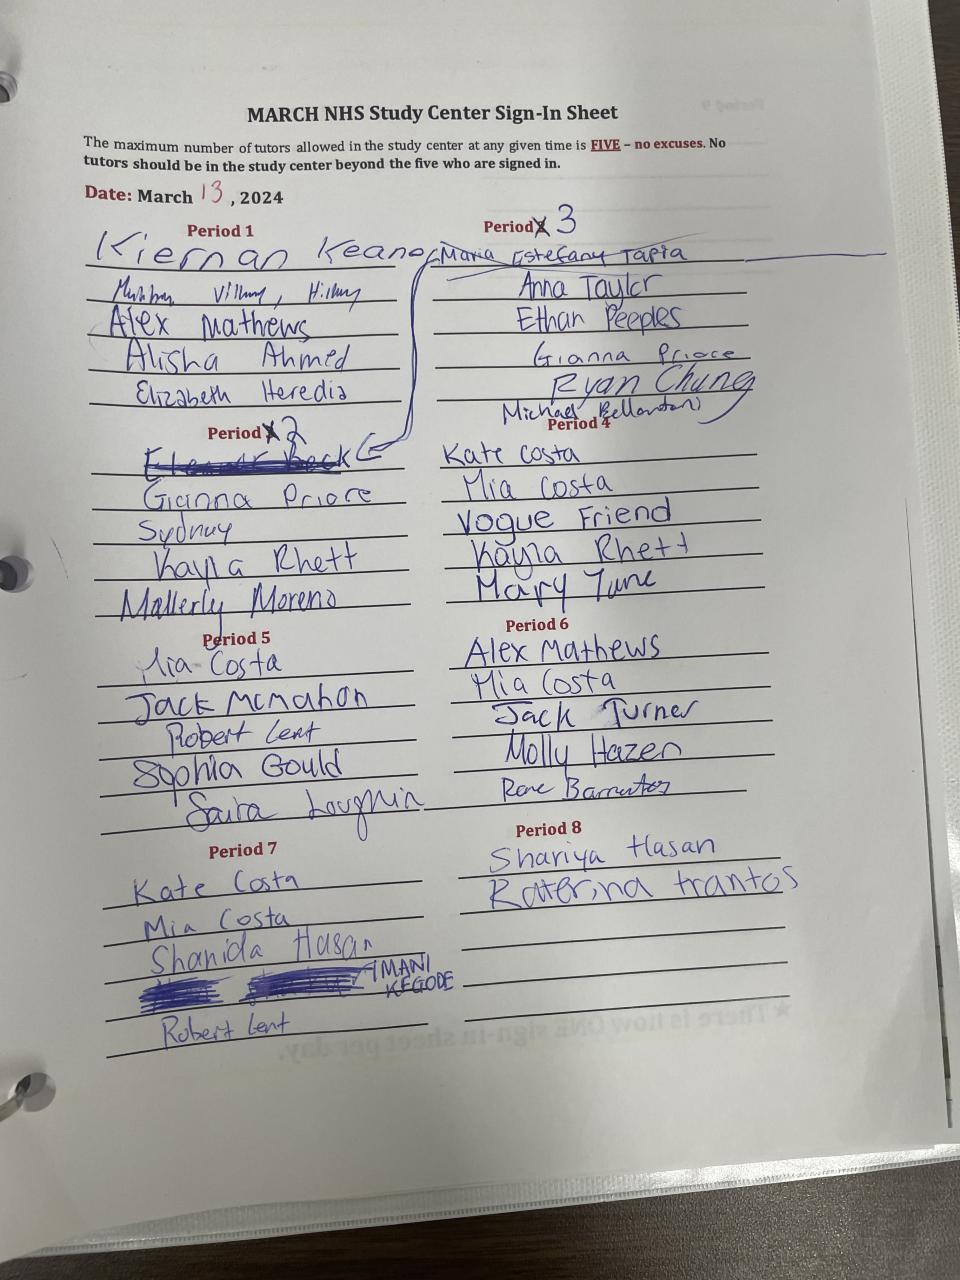 MARCH NHS Study Center Sign-In Sheet
The maximum number of tutors allowed in the study center at any given time is FIVE – no excuses. No
tutors should be in the study center beyond the five who are signed in.
Date: March 13, 2024
Period 1
Kiernan Keane
Alex Mathews
Alisha Ahmed
Elizabeth Heredia
Period 2
Gianna Priore
Sydney
Kayla Rhett
Mallerly Moreno
Period 3
Maria Estefany Tapia
Anna Taylor
Ethan Peeples
Gianna Priore
Ryan Chung
Michael Bellantoni
Period 4
Kate Costa
Mia Costa
Vogue Friend
Kayla Rhett
Mary Tune
Period 5
Mia Costa
Jack McMahon
Robert Lent
Sophia Gould
Saira Loughlin
Period 6
Alex Mathews
Mia Costa
Jack Turner
Molly Hazen
Period 7
Kate Costa
Mia Costa
Shanida Hasan
IMANI
KEGODE
Robert Lent
Period 8
Shariya Hasan
Katerina trantos